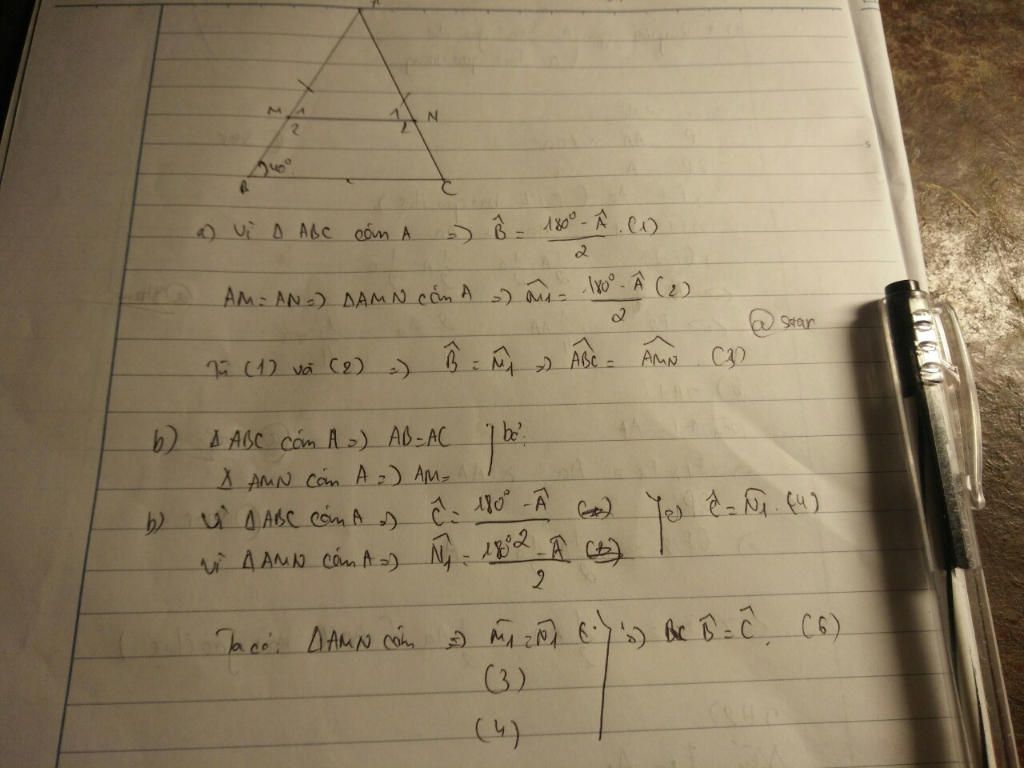 A
M 1 1 N
2 2
B 40° C
a) Vì Δ ABC cân A => B̂ = (180° - Â)/2 . (1)
AM = AN => ΔAMN cân A => M̂1 = (180° - Â)/2 (2)
Từ (1) và (2) => B̂ = M̂1 => ABC = AMN (3)
b) Δ ABC cân A => AB = AC
Δ AMN cân A => AM =
b) Vì ΔABC cân A => Ĉ = (180° - Â)/2 => Ĉ = N̂1 . (4)
Vì ΔAMN cân A => N̂1 = (180° - Â)/2
Ta có: ΔAMN cân => M̂1 = N̂1 => BC B̂ = Ĉ . (6)
(3)
(4)